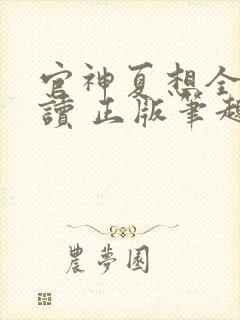 官神夏想全
讀 正版筆趣
農夢園